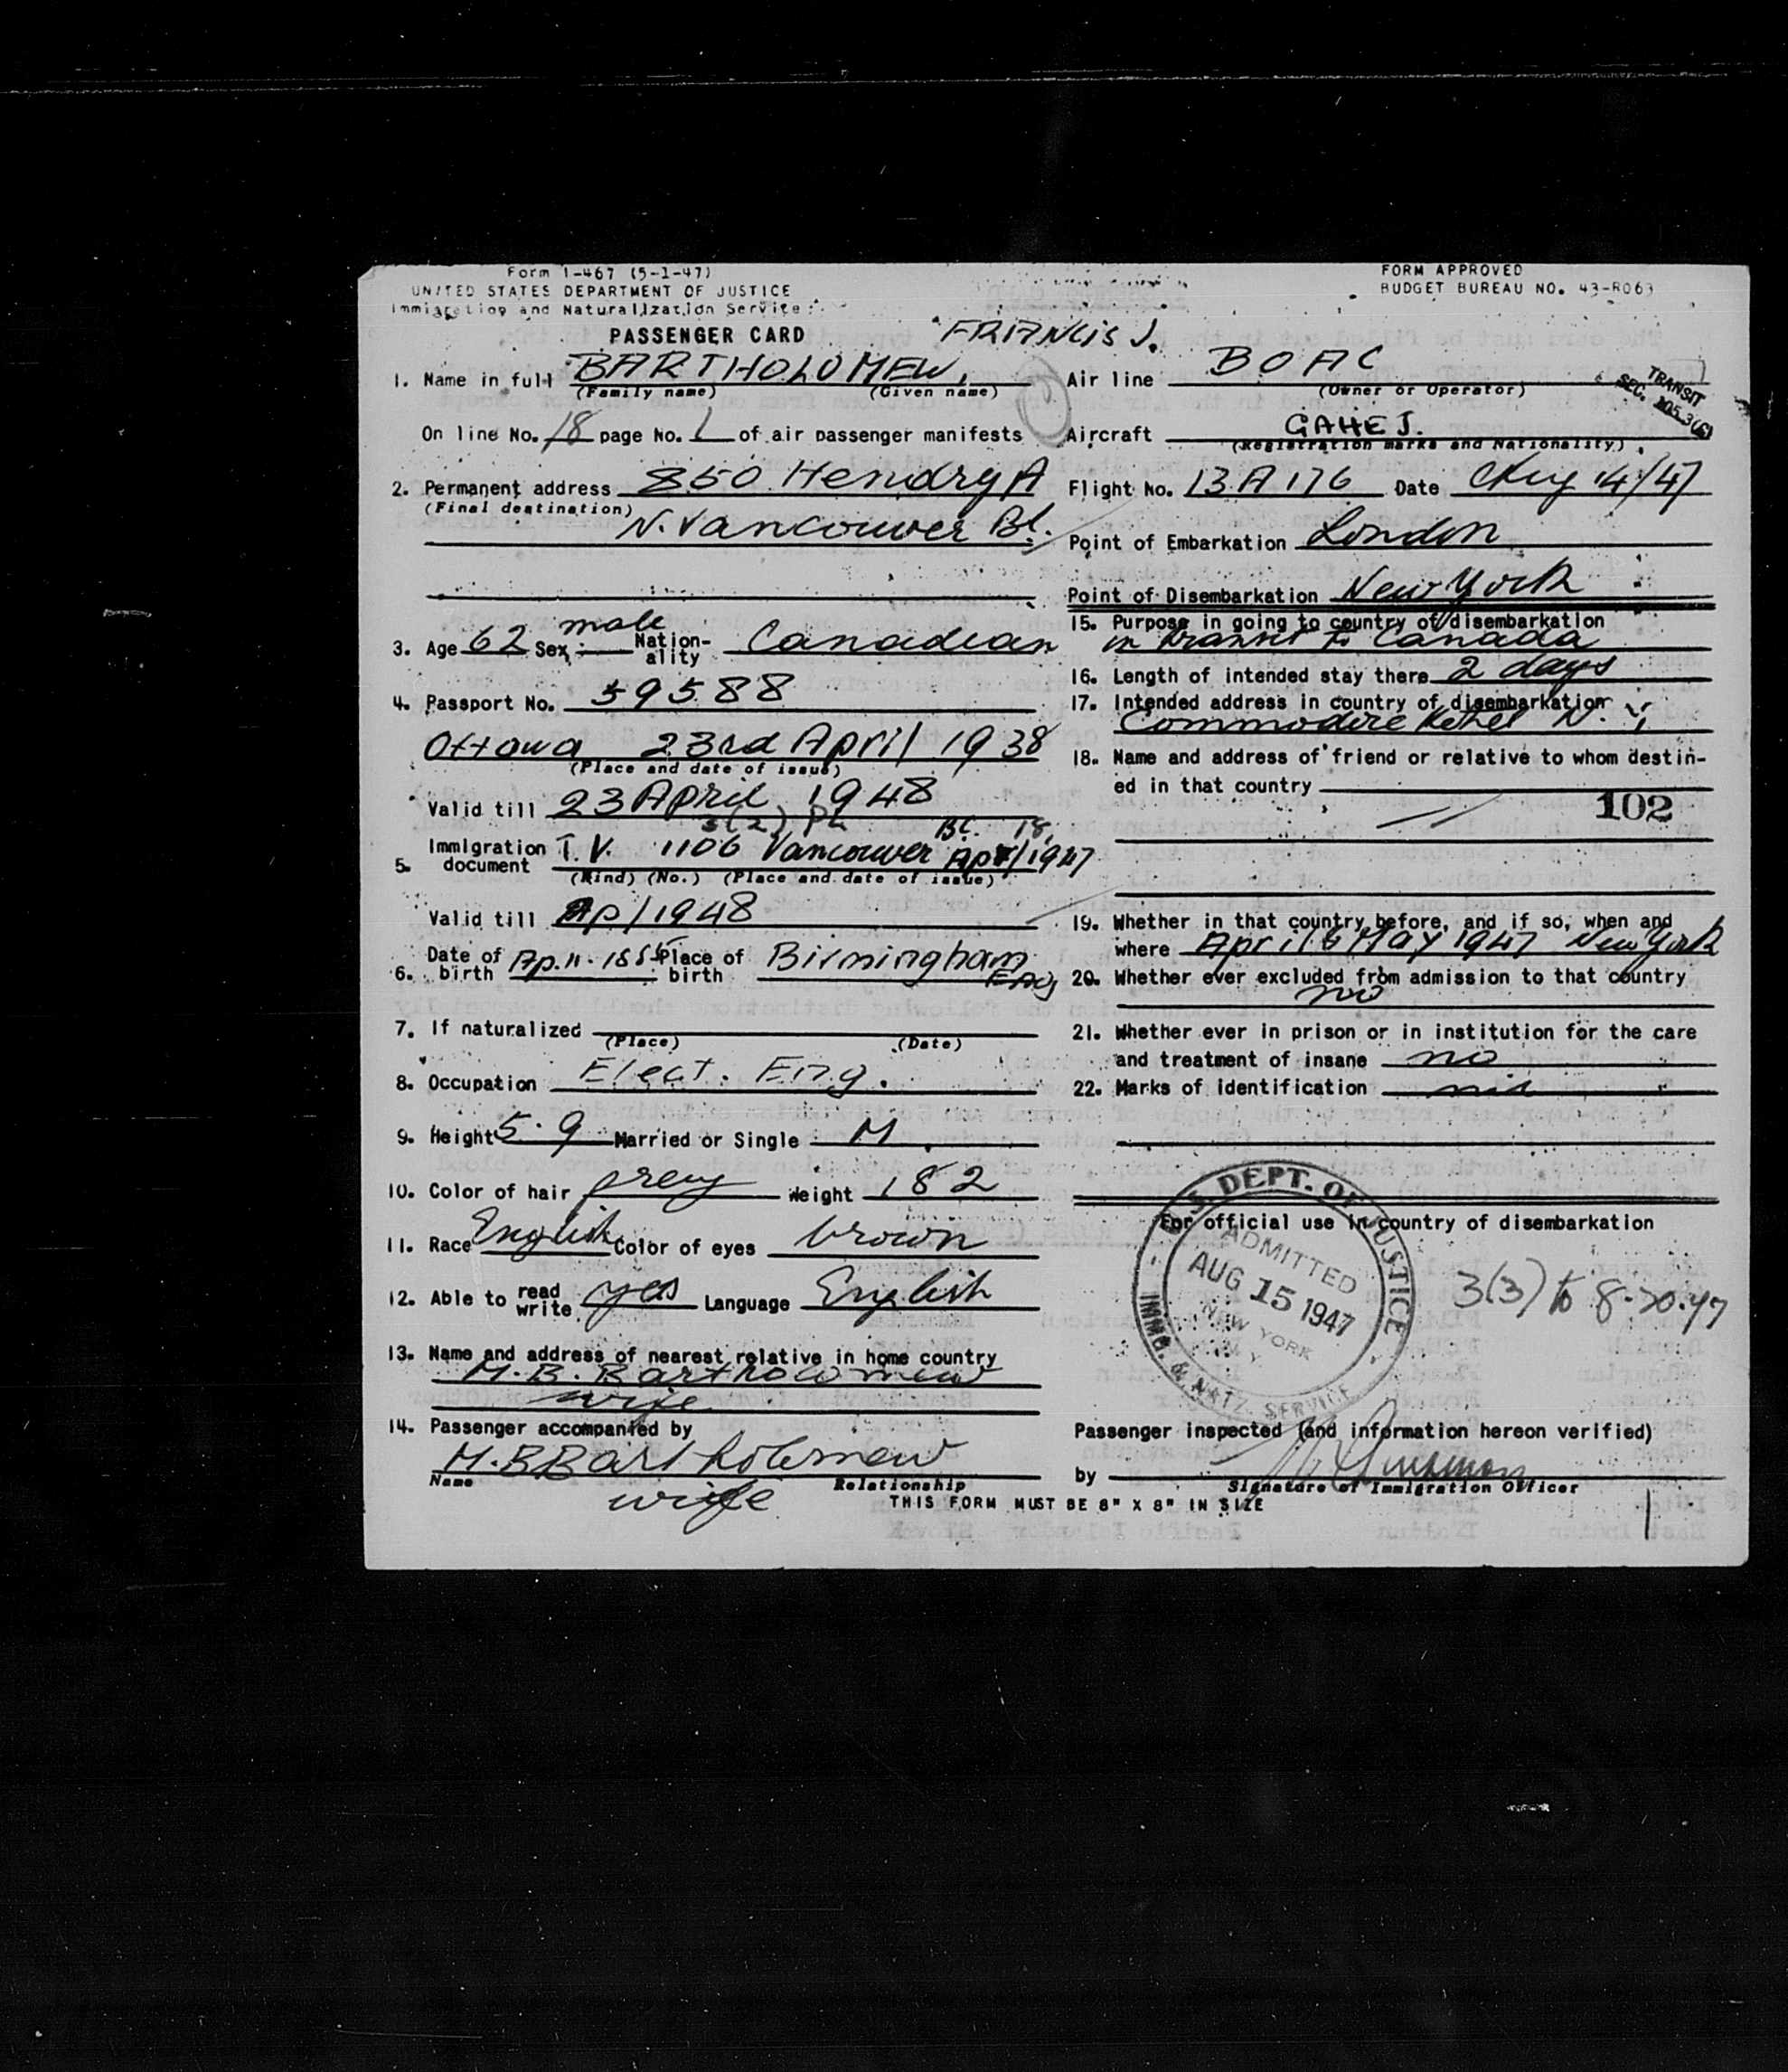 Form I-467 (5-1-47)
UNITED STATES DEPARTMENT OF JUSTICE
Immigration and Naturalization Service
PASSENGER CARD
FORM APPROVED
BUDGET BUREAU NO. 43-R063
FRANCIS J.
1. Name in full BARTHOLOMEW,
(Family name) (Given name)
On line No. 18 page No. 1 of air passenger manifests
2. Permanent address 850 Hendry A
(Final destination)
N. Vancouver
3. Age 62 Sex male Nation-ality Canadian
4. Passport No. 59588
Ottawa 23rd April 1938
(Place and date of issue)
Valid till 23 April 1948
3(2)
BC. 18,
5. Immigration document T.V. 1106 Vancouver Apr/1947
(Kind) (No.) (Place and date of issue)
Valid till Ap/1948
6. Date of birth Ap. 11. 1885 Place of birth Birmingham
Eng
7. If naturalized
(Place) (Date)
8. Occupation Elect. Eng.
9. Height 5.9 Married or Single M
10. Color of hair grey Weight 182
11. Race English Color of eyes brown
12. Able to read write yes Language English
13. Name and address of nearest relative in home country
M.B. Bartholomew
wife
14. Passenger accompanied by
M.B Bartholomew
Name Relationship
wife
THIS FORM MUST BE 8" X 8" IN SIZE
Air line BOAC
(Owner or Operator)
TRANSIT
SEC. 105.3(c)
Aircraft GAHEJ.
(Registration marks and Nationality)
Flight No. 13A176 Date Aug 14/47
Point of Embarkation London
Point of Disembarkation New York
15. Purpose in going to country of disembarkation
in transit to Canada
16. Length of intended stay there 2 days
17. Intended address in country of disembarkation
Commodore Hotel N.Y.
18. Name and address of friend or relative to whom destin-
ed in that country
102
19. Whether in that country before, and if so, when and
where April & May 1947 New York
20. Whether ever excluded from admission to that country
no
21. Whether ever in prison or in institution for the care
and treatment of insane no
22. Marks of identification nil
For official use in country of disembarkation
U.S. DEPT. OF JUSTICE
ADMITTED
AUG 15 1947
NEW YORK
N.Y.
IMMG. & NATZ. SERVICE
3(3) to 8-20-47
Passenger inspected (and information hereon verified)
by
Signature of Immigration Officer